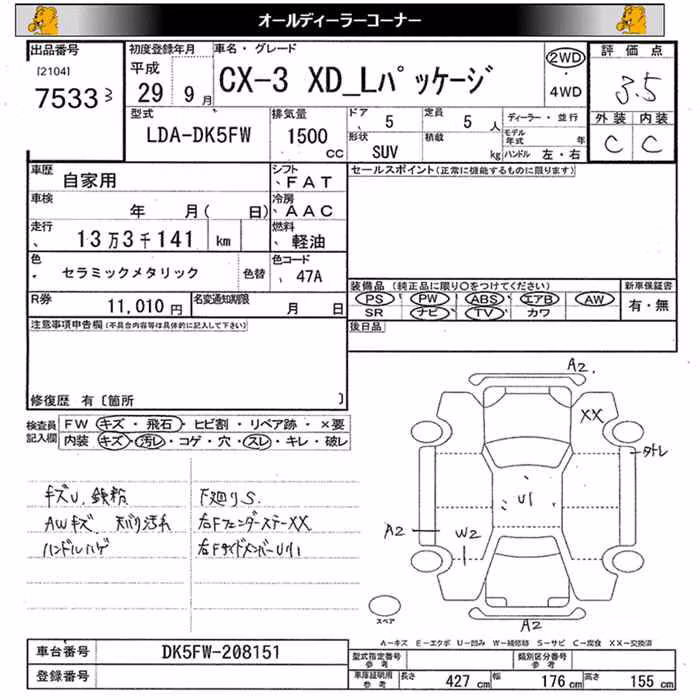 オールディーラーコーナー
出品番号
[2104]
7533 3
初度登録年月
平成
29 9月
車名・グレード
CX-3 XD_Lパッケージ
2WD
・
4WD
評価点
3.5
外装 内装
C C
型式
LDA-DK5FW
排気量
1500
CC
ドア
5
定員
5 人
形状
SUV
積載
kg
ディーラー・並行
モデル年式 年
ハンドル 左・右
車歴
自家用
シフト
、FAT
車検
年 月( 日)
冷房
、AAC
走行
、 13万3千141 km
燃料
、軽油
色
、 セラミックメタリック 色替
色コード
、 47A
R券 11,010円
名変通知期限
月 日
セールスポイント(正常に機能するものに限ります)
装備品(純正品に限り○をつけてください)
PS PW ABS エアB AW
SR ナビ TV カワ
新車保証書
有・無
後日品
注意事項申告欄(不具合内容等は具体的に記入して下さい)
修復歴 有〔箇所 〕
検査員記入欄
FW キズ・飛石・ヒビ割・リペア跡・×要
内装 キズ・汚レ・コゲ・穴・スレ・キレ・破レ
キズU、鉄粉
AWキズ 天バリ汚れ
ハンドルハゲ
下廻りS
右FフェンダーステーXX
右FサイドメンバーU小
A2
XX
U1
A2
W2
A2
スペア
A-キズ E-エクボ U-凹み W-補修跡 S-サビ C-腐食 XX-交換済
車台番号 DK5FW-208151
登録番号
型式指定番号
参考
類別区分番号
参考
車庫証明用
参考
長さ 427 cm 幅 176 cm 高さ 155 cm